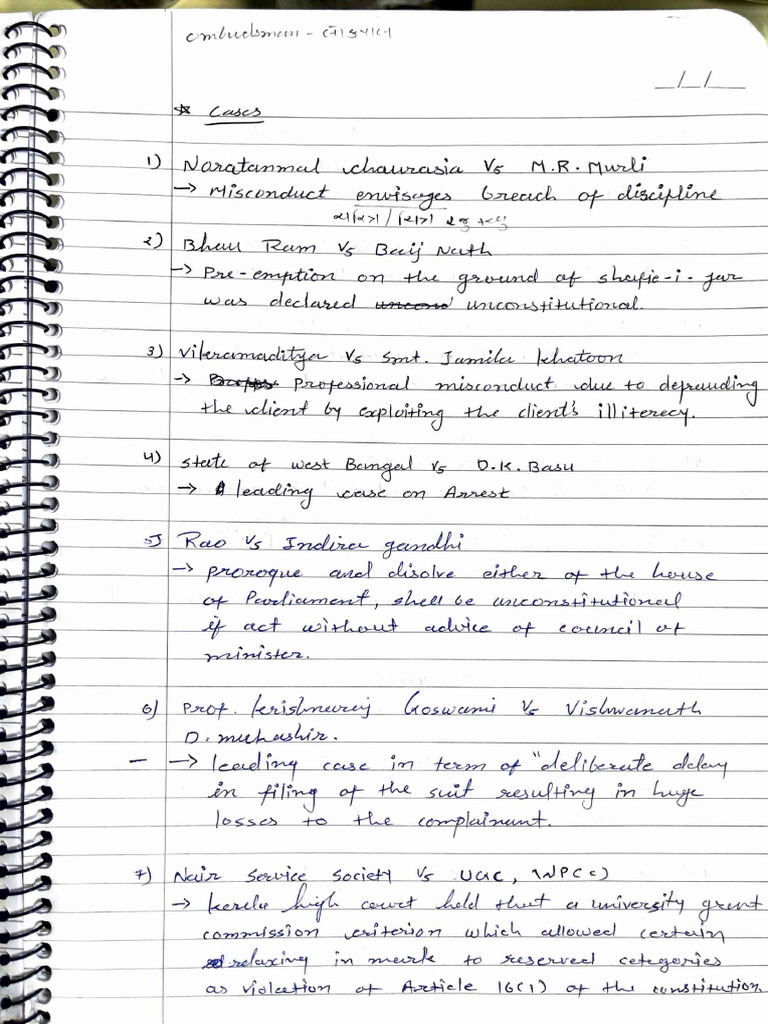 ombudsman - लोकपाल
_/_/_
* Cases
1) Naratanmal chaurasia Vs M.R. Murli
→ Misconduct envisages breach of discipline
2) Bhau Ram Vs Baij Nath
→ Pre-emption on the ground of shafie-i-jar
was declared unconstitutional.
3) Vikramaditya Vs Smt. Jamila khatoon
→ Professional misconduct due to deprauding
the client by exploiting the client's illiterecy.
4) State of west Bengal vs D.K. Basu
→ leading case on Arrest
5) Rao Vs Indira gandhi
→ proroque and disolve either of the house
of Parliament, shall be unconstitutional
if act without advice of council of
minister.
6) Prof. krishnaraj Goswami Vs Vishwanath
D. mukashir.
- → leading case in term of "deliberate delay
in filing of the suit resulting in huge
losses to the complainant.
7) Nair Service Society Vs UGC,
→ kerela high court held that a university grant
commission criterion which allowed certain
relaxing in mark to reserved categories
as violation of Article 16(1) of the constitution.